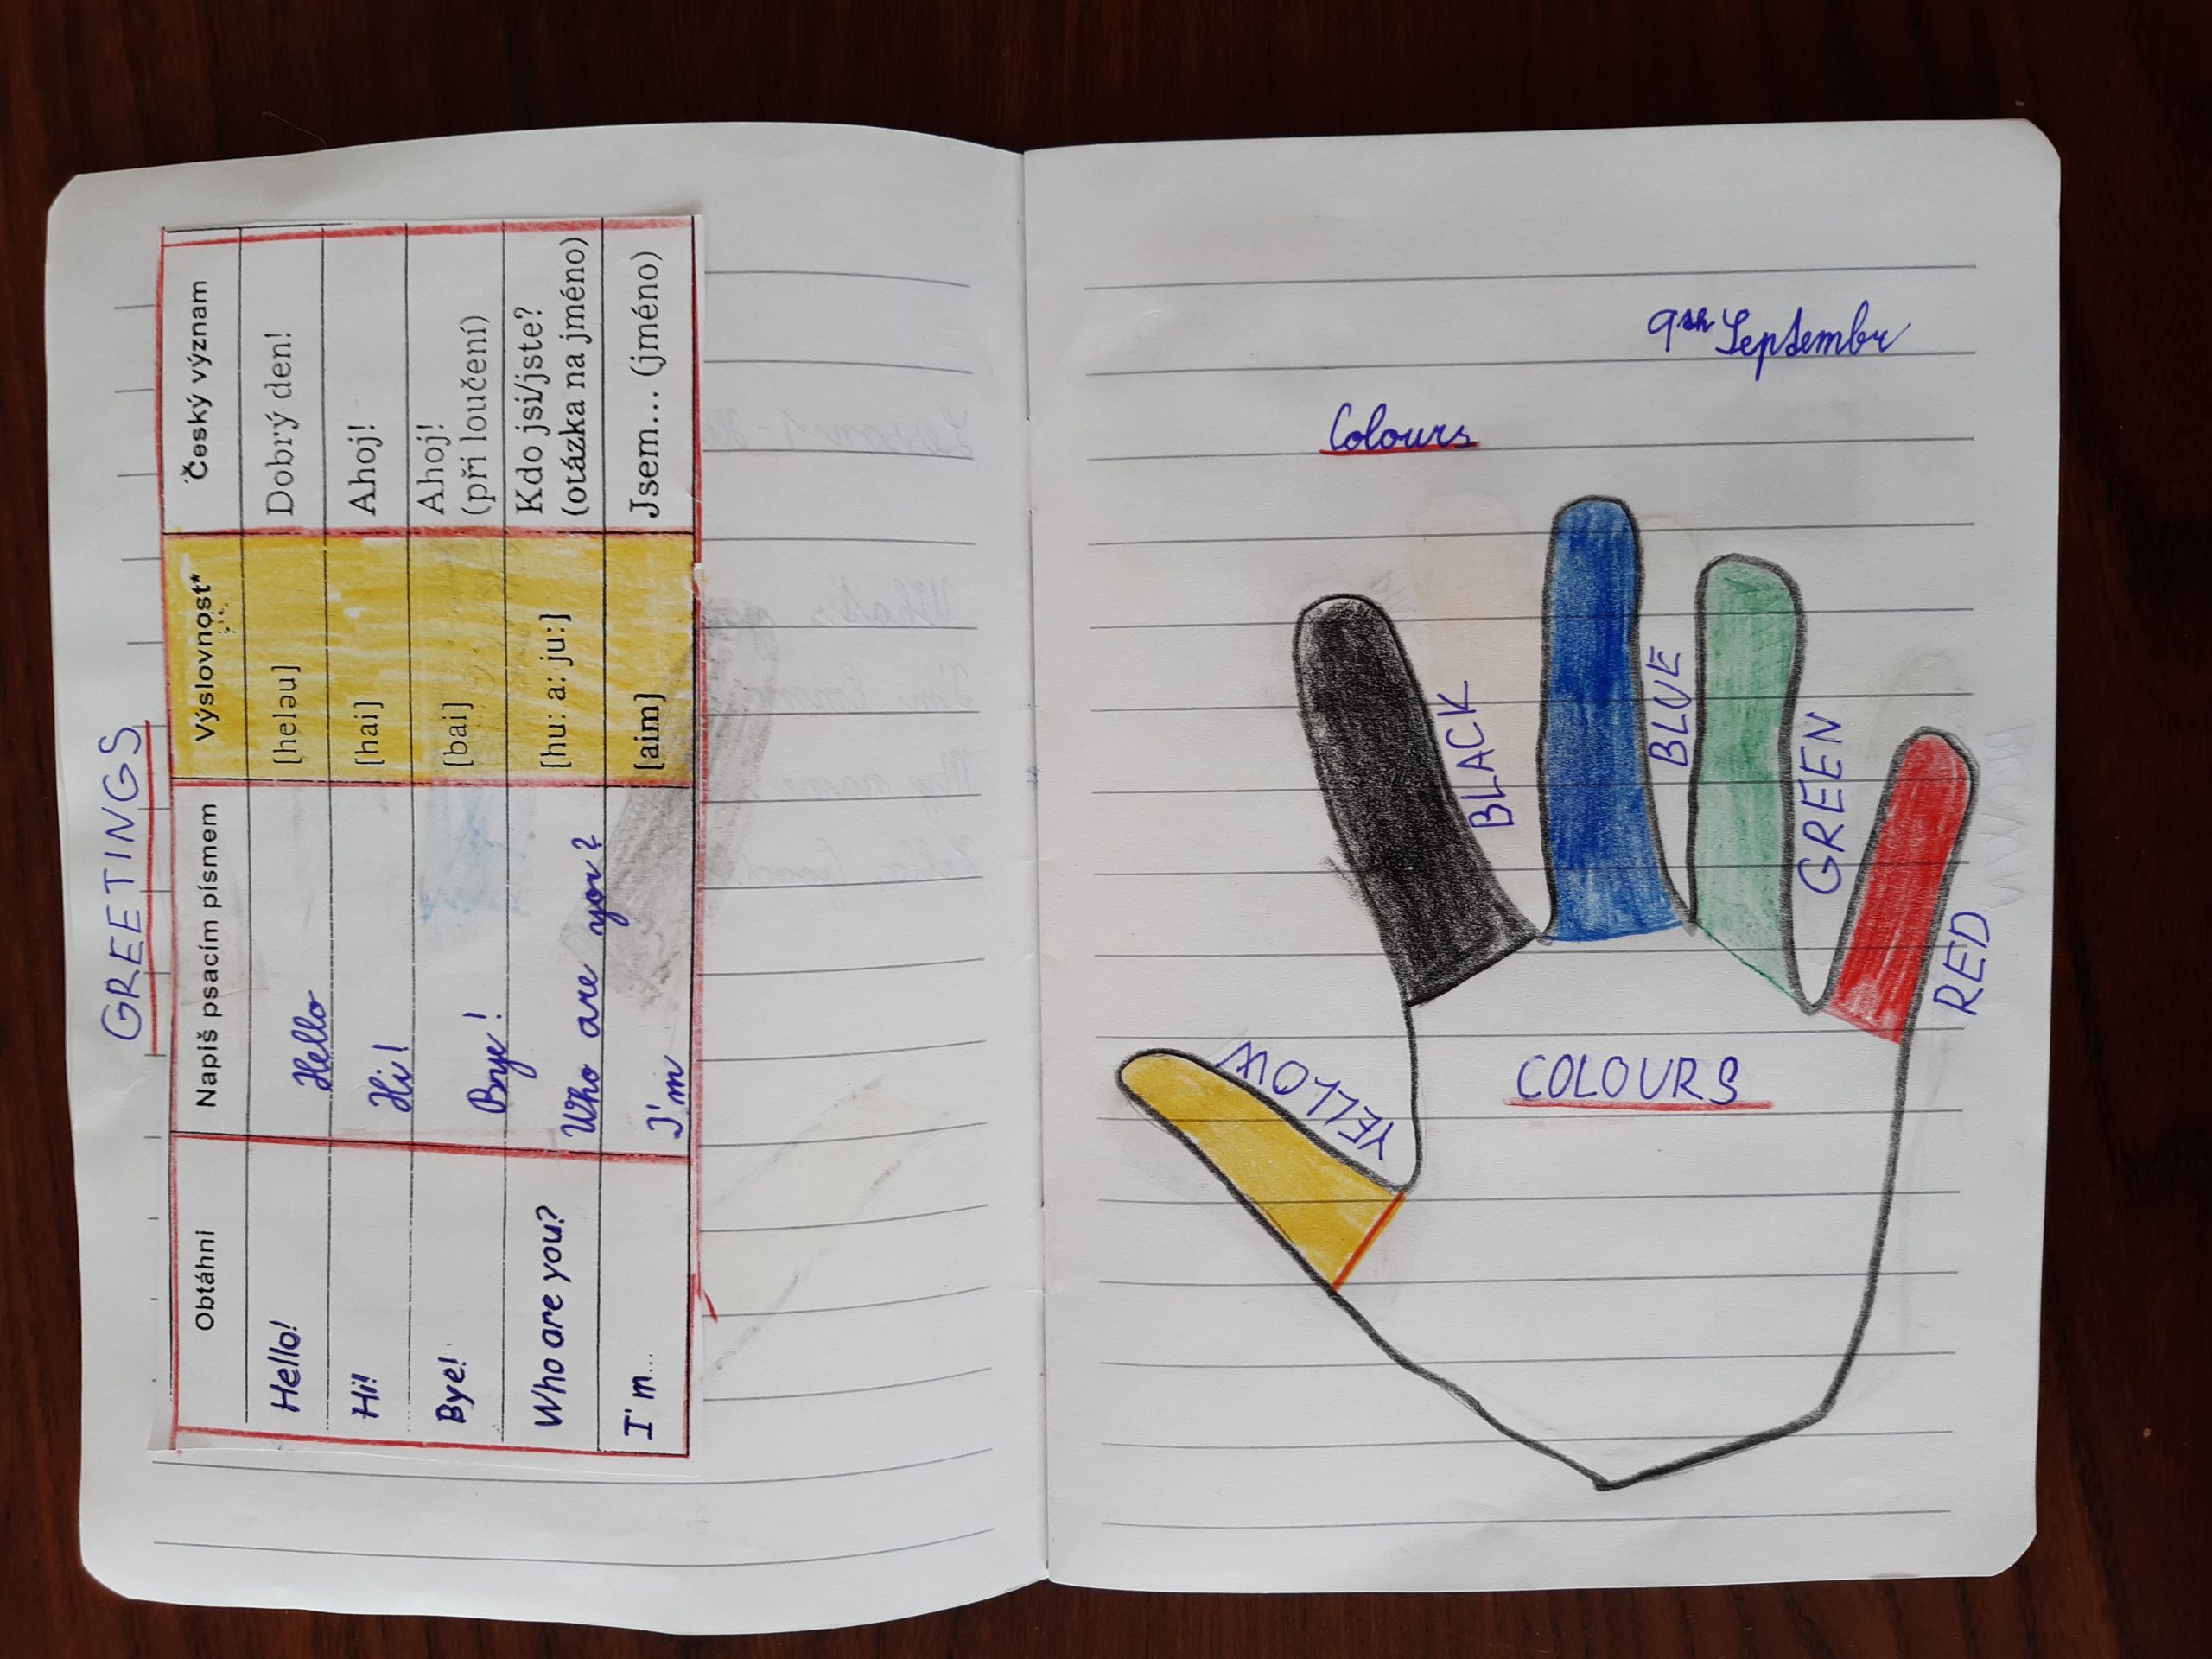 GREETINGS
Obtáhni Napiš psacím písmem Výslovnost* Český význam
Hello! Hello [heləu] Dobrý den!
Hi! Hi! [hai] Ahoj!
Bye! Bye! [bai] Ahoj!
(při loučení)
Who are you? Who are you? [hu: a: ju:] Kdo jsi/jste?
(otázka na jméno)
I'm... I'm [aim] Jsem... (jméno)
9th Septembr
Colours
BLACK
BLUE
GREEN
RED
YELLOW
COLOURS